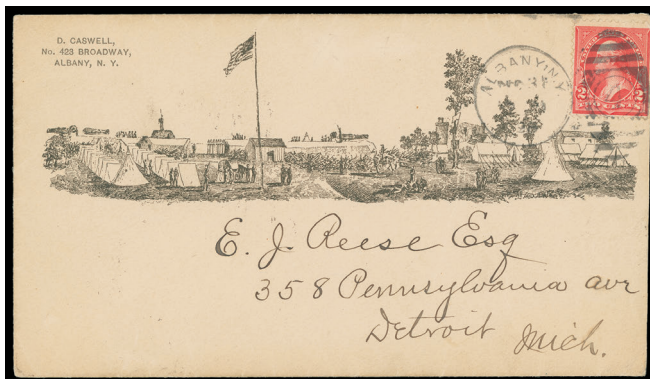 D. CASWELL,
No. 423 BROADWAY,
ALBANY, N. Y.
ALBANY N.Y.
2 2
E. J. Reese Esq
358 Pennsylvania ave
Detroit Mich.